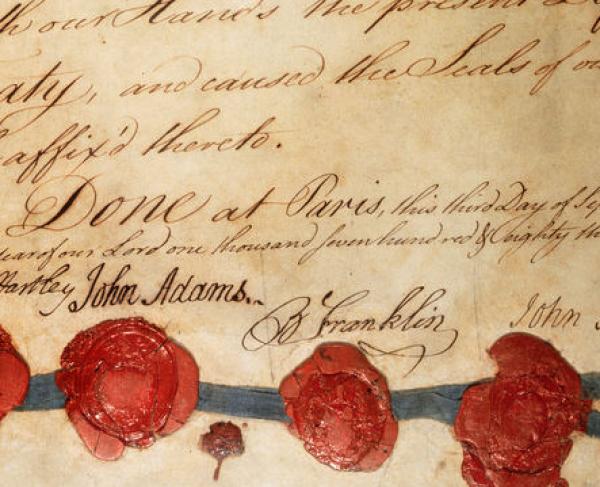 our Hands the present
aty, and caused the Seals of
affix'd thereto.
Done at Paris, this third Day of
year of our Lord one thousand seven hundred & eighty
Hartley John Adams. B Franklin John